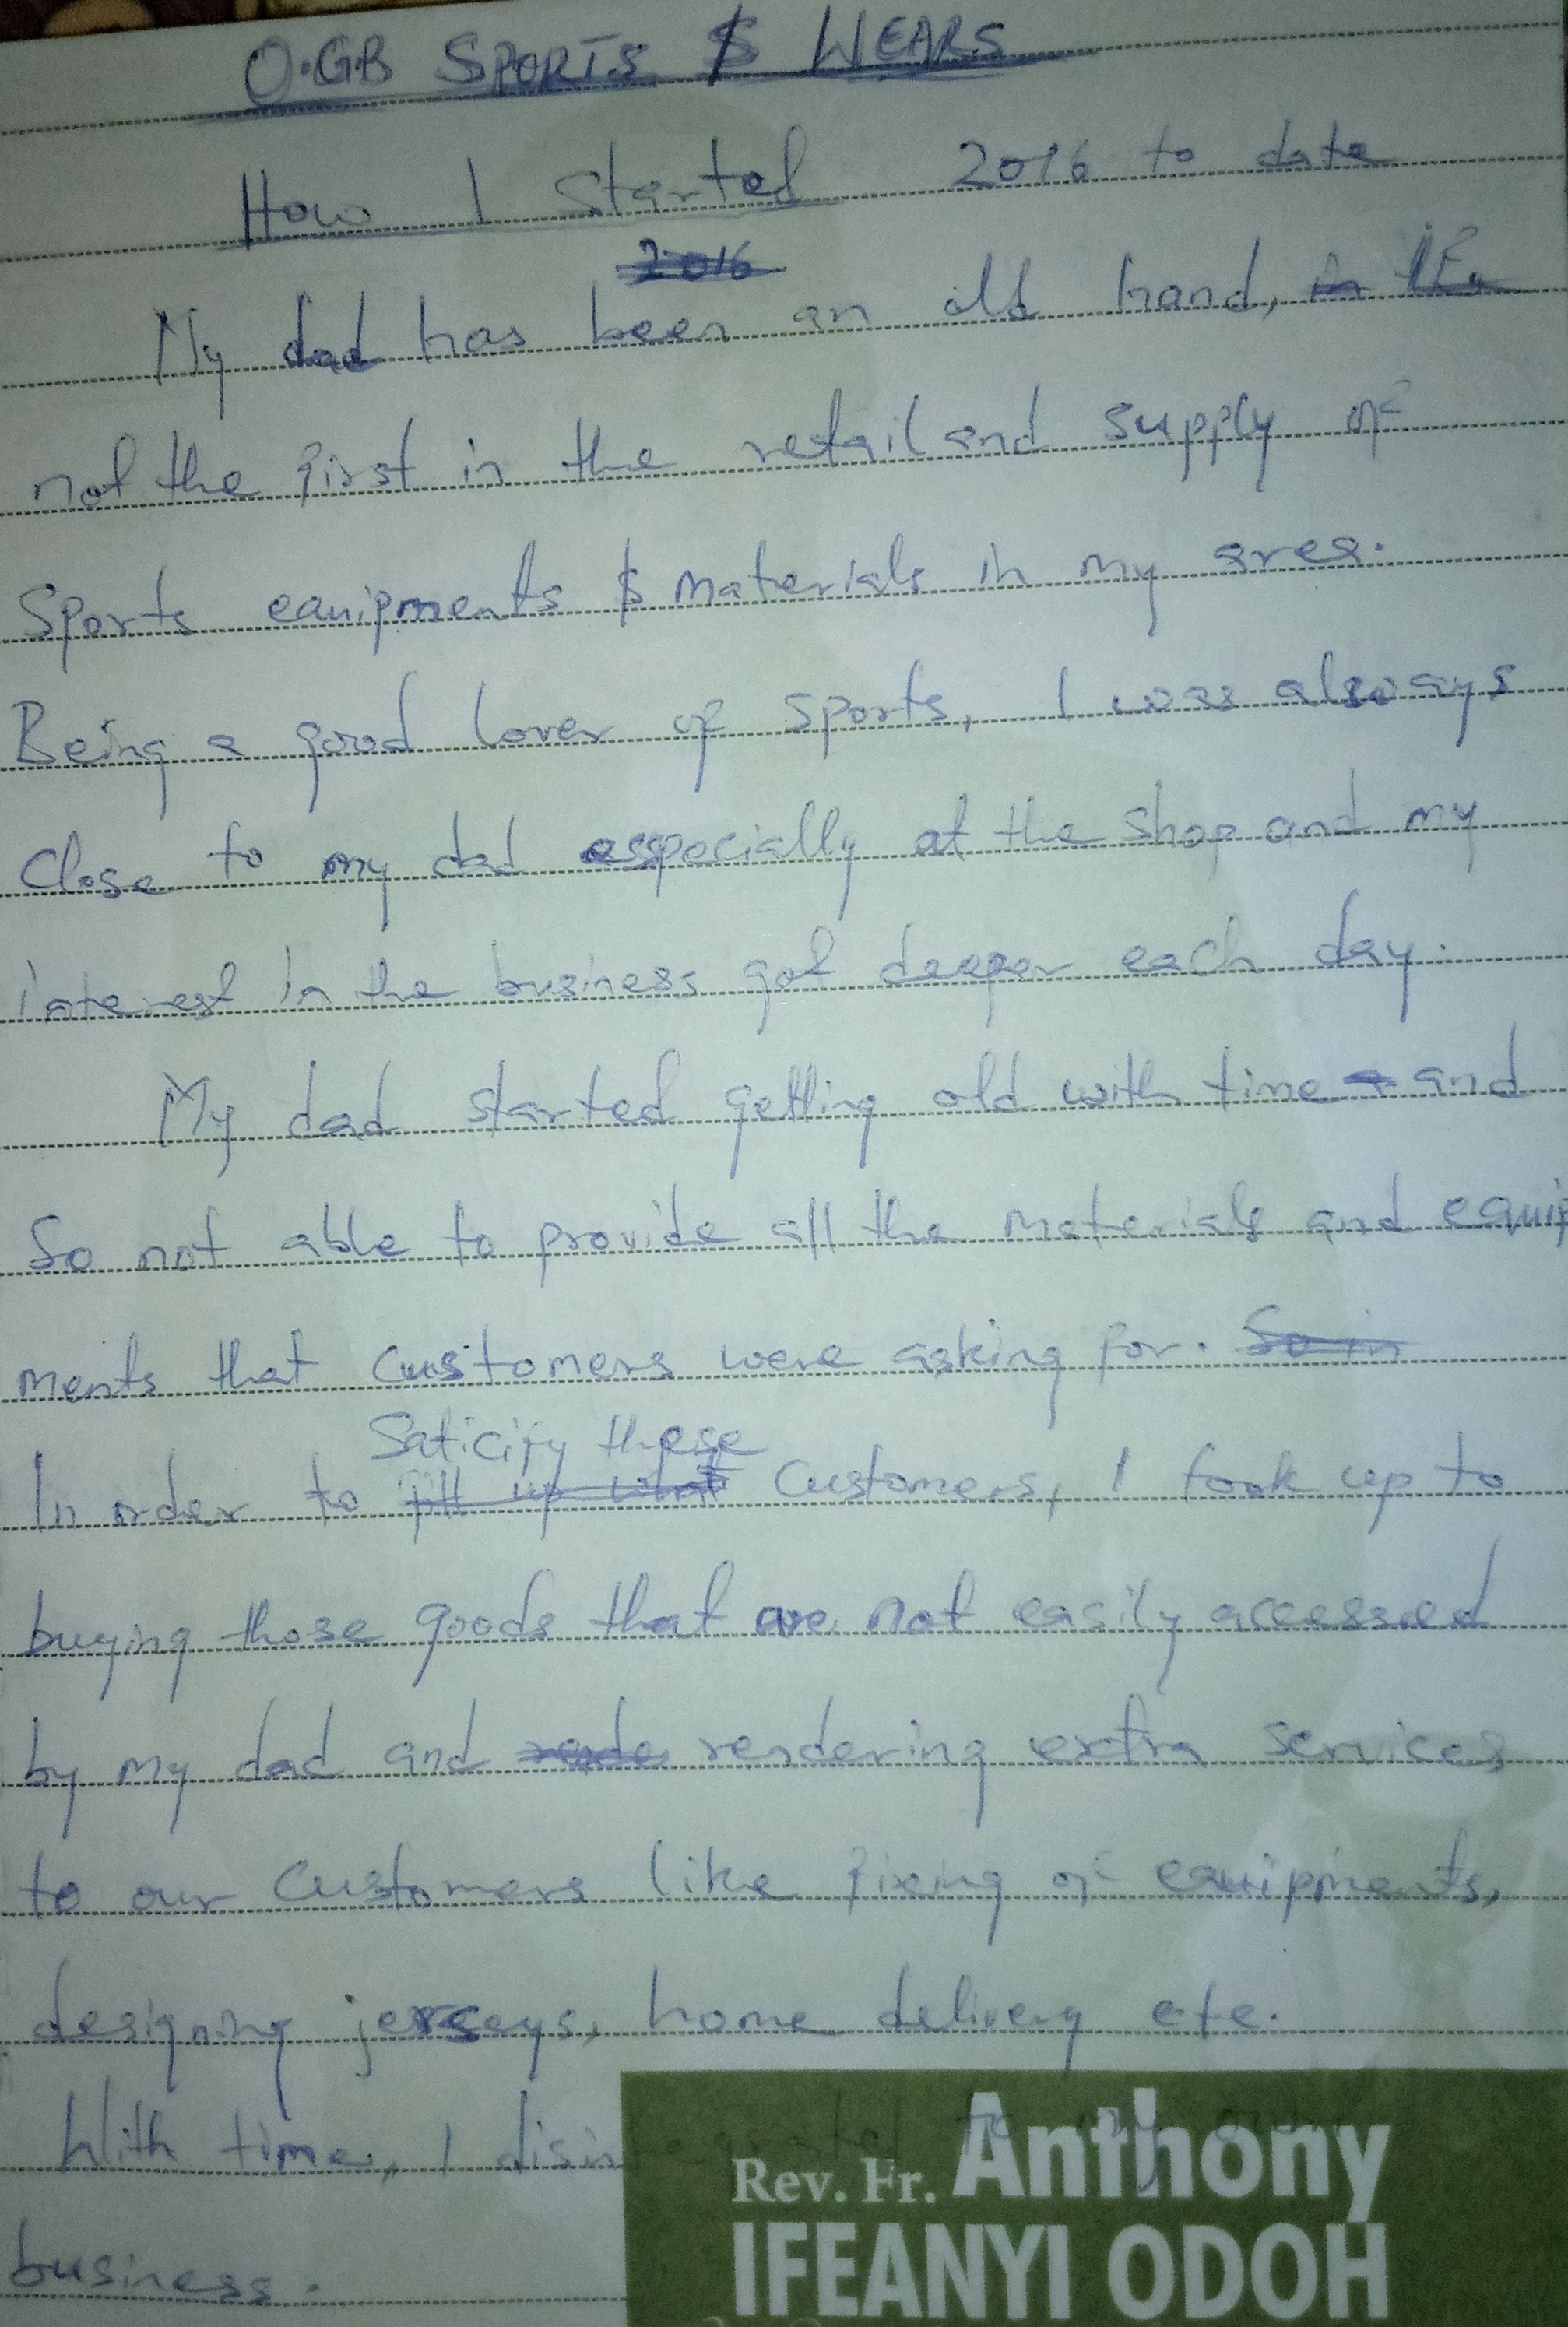 O.GB SPORTS $ WEARS
How I Started 2016 to date
2016
My dad has been an old hand, in the
not the first in the retail and supply of
Sports equipments $ materials in my area.
Being a good lover of sports, I was always
Close to my dad esspecially at the shop and my
interest in the business got deeper each day.
My dad started getting old with time and
So not able to provide all the materials and equip
ments that customers were asking for. So in
Saticify these
In order to fill up what Customers, I took up to
buying those goods that are not easily accessed
by my dad and rende rendering extra services
to our Customers like fixing of equipments,
designing jerseys, home delivery etc.
With time, I disintegrated to my own
business.
Rev. Fr. Anthony
IFEANYI ODOH